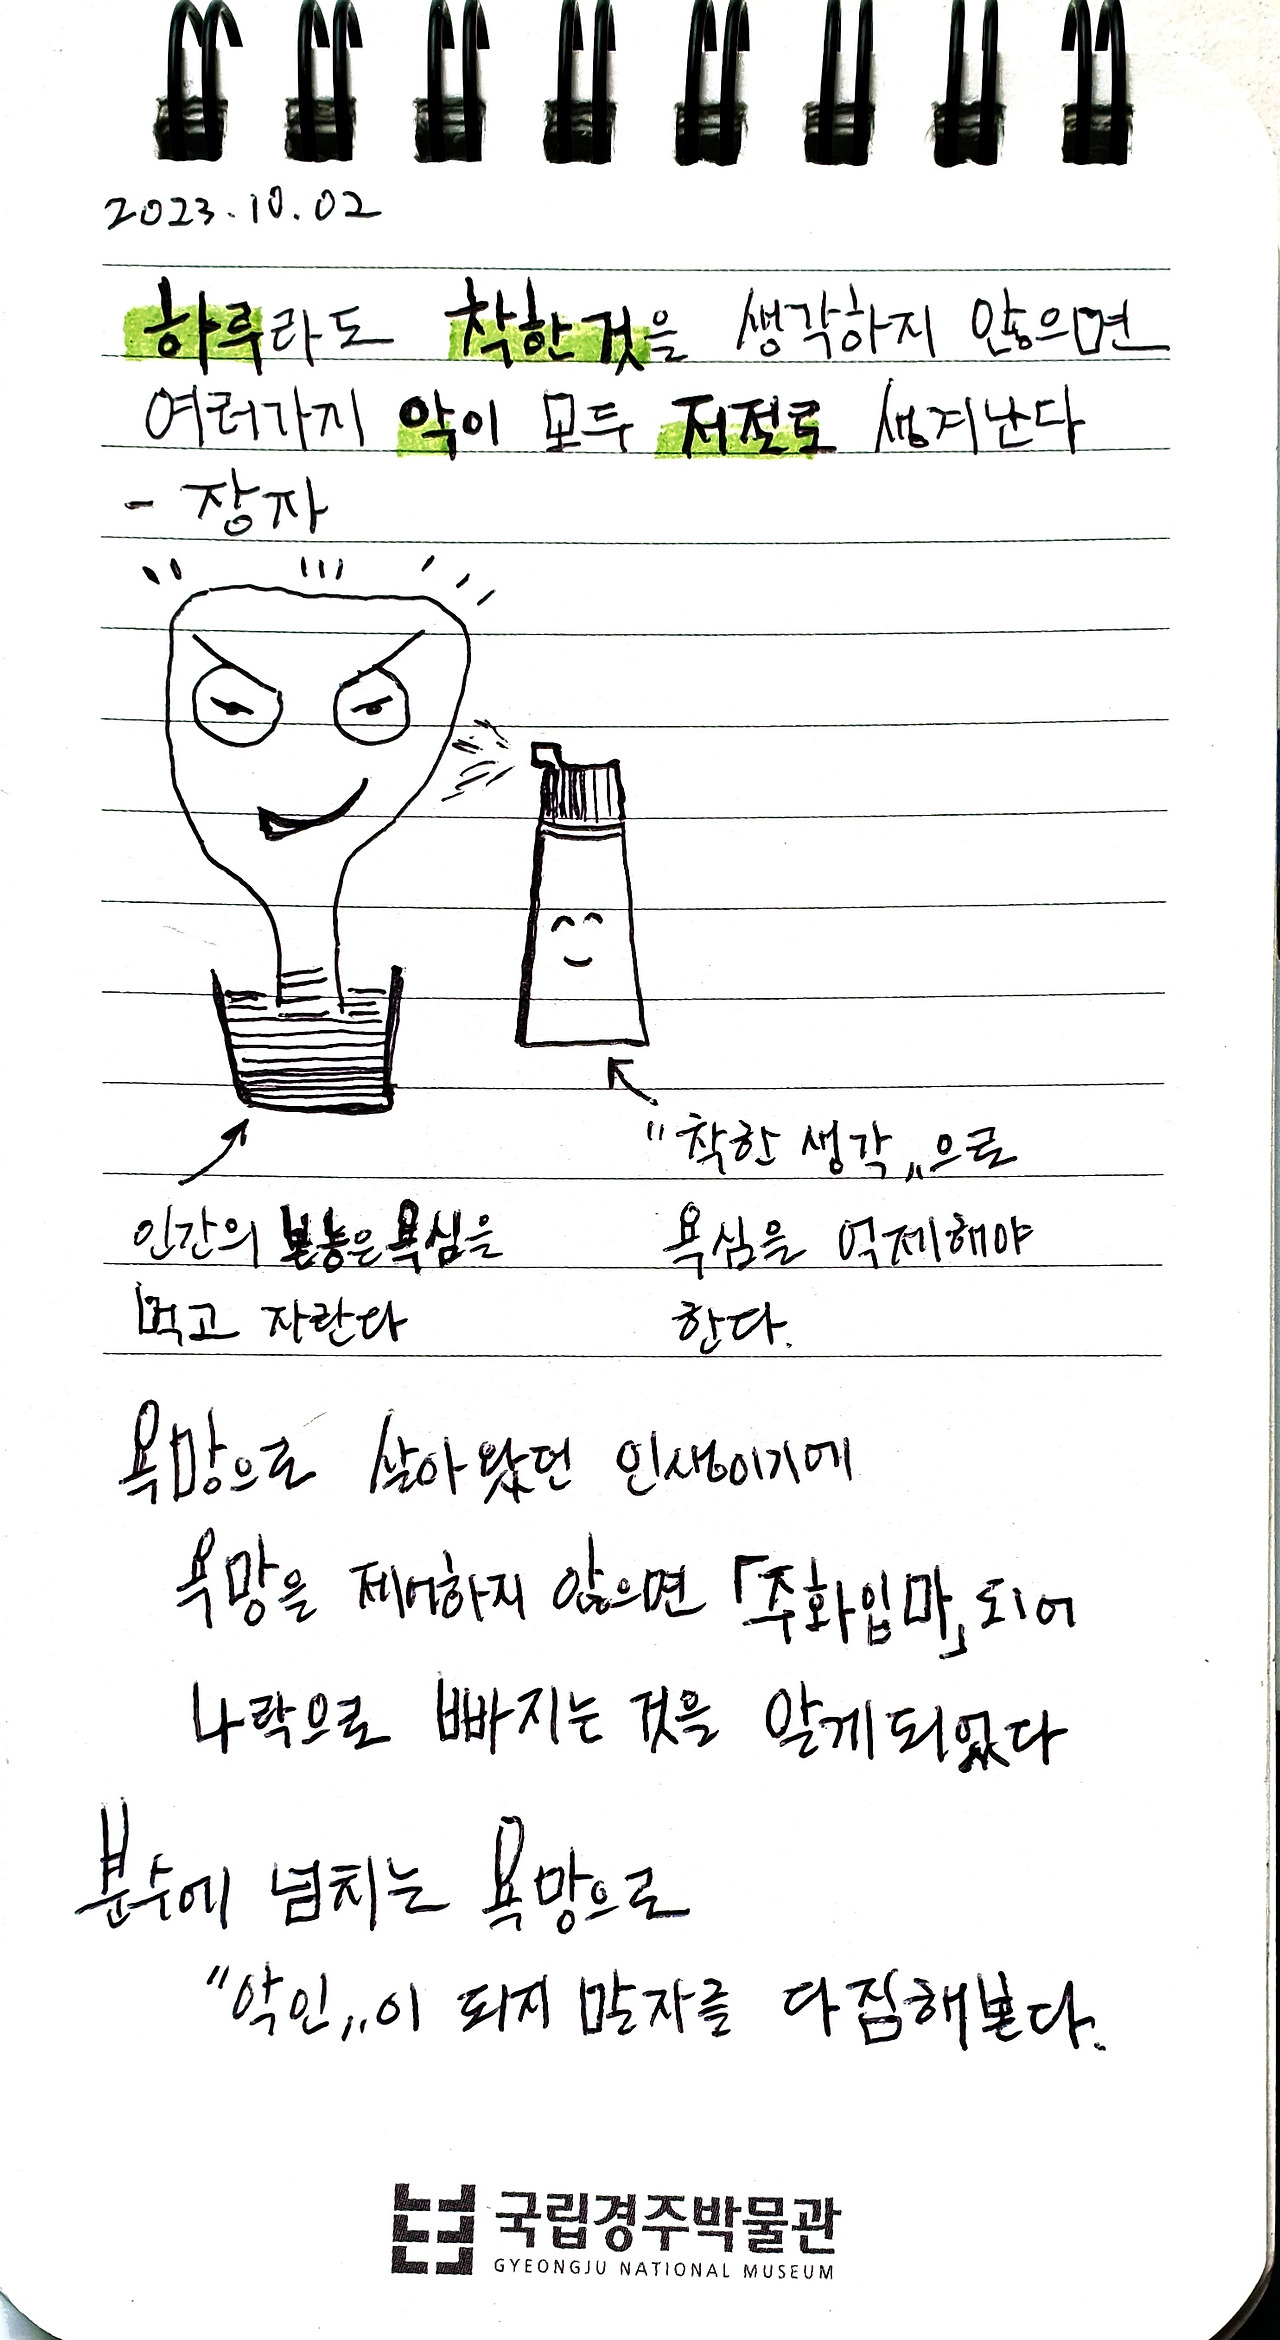 2023.10.02
하루라도 착한것을 생각하지 않으면
여러가지 악이 모두 저절로 생겨난다
- 장자
"착한 생각"으로
인간의 본능은 욕심을
욕심을 억제해야
먹고 자란다
한다.
욕망으로 살아왔던 인생이기에
욕망을 제어하지 않으면 「주화입마」되어
나락으로 빠지는 것을 알게되었다
분수에 넘치는 욕망으로
"악인"이 되지 말자를 다짐해본다.
국립경주박물관
GYEONGJU NATIONAL MUSEUM